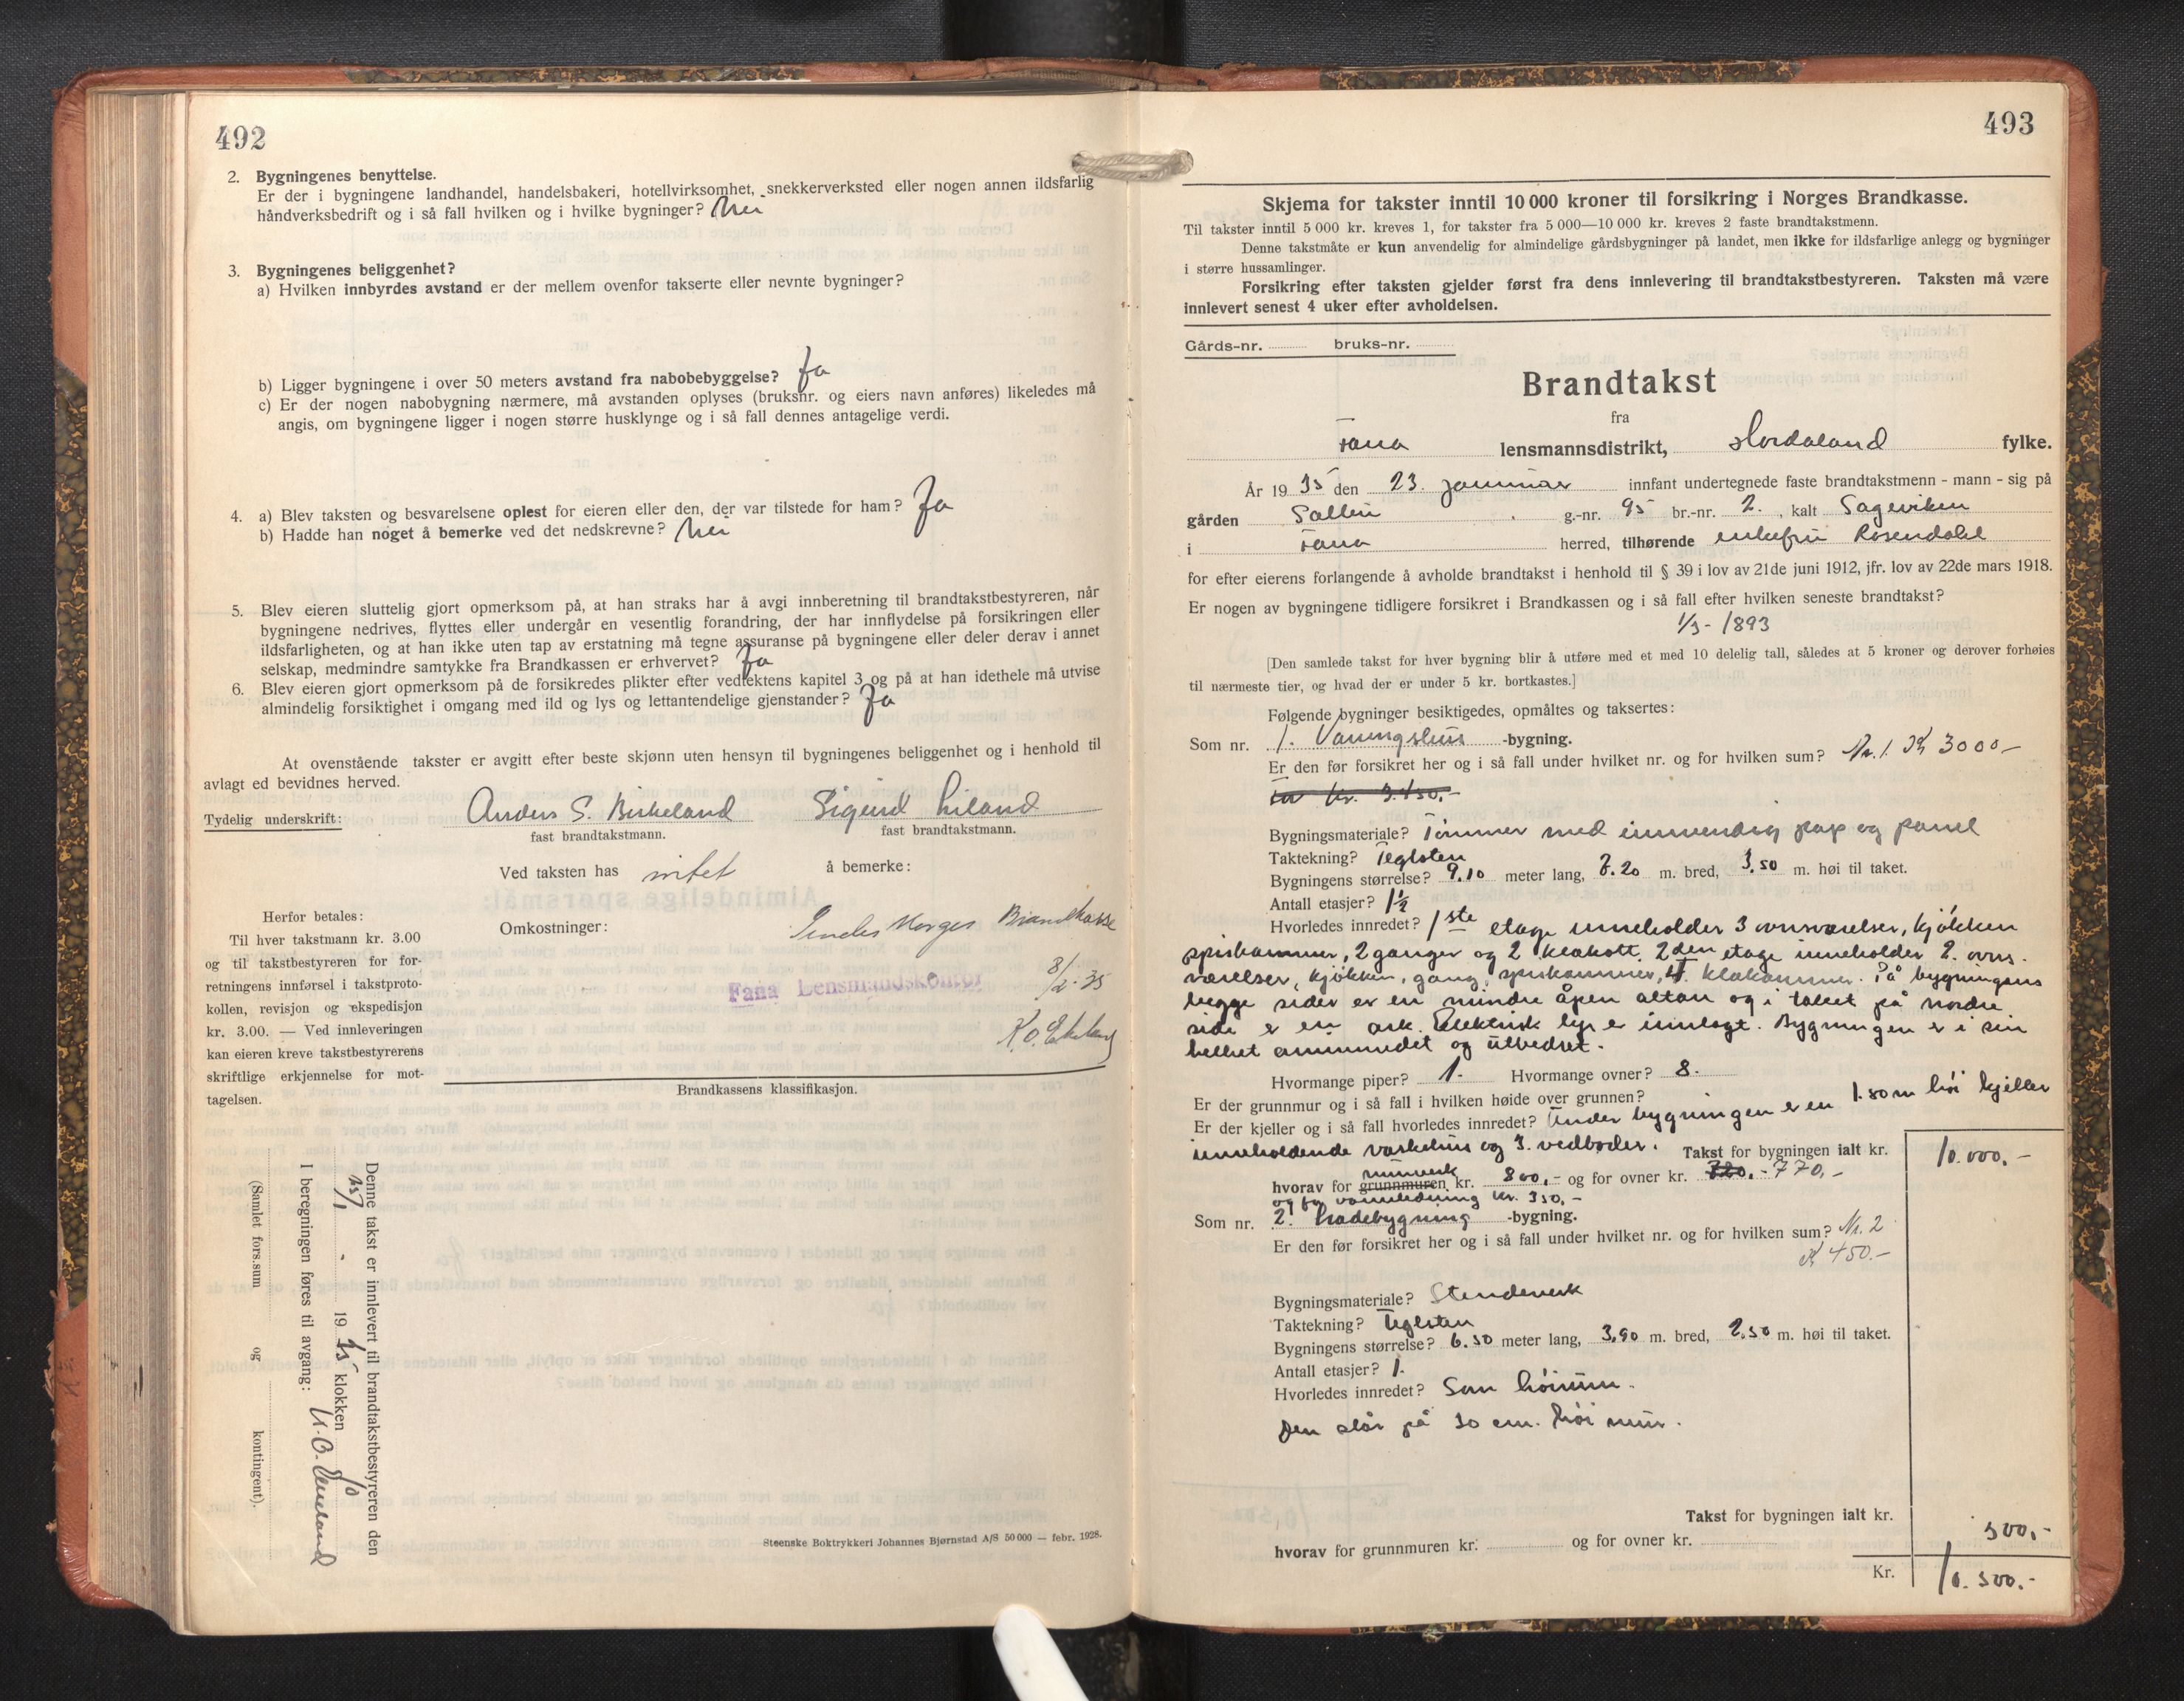 492
2. Bygningenes benyttelse.
Er der i bygningene landhandel, handelsbakeri, hotellvirksomhet, snekkerverksted eller nogen annen ildsfarlig
håndverksbedrift og i så fall hvilken og i hvilke bygninger? Nei
3. Bygningenes beliggenhet?
a) Hvilken innbyrdes avstand er der mellem ovenfor takserte eller nevnte bygninger?
b) Ligger bygningene i over 50 meters avstand fra nabobebyggelse? Ja
c) Er der nogen nabobygning nærmere, må avstanden oplyses (bruksnr. og eiers navn anføres) likeledes må
angis, om bygningene ligger i nogen større husklynge og i så fall dennes antagelige verdi.
4. a) Blev taksten og besvarelsene oplest for eieren eller den, der var tilstede for ham? Ja
b) Hadde han noget å bemerke ved det nedskrevne? Nei
5. Blev eieren sluttelig gjort opmerksom på, at han straks har å avgi innberetning til brandtakstbestyreren, når
bygningene nedrives, flyttes eller undergår en vesentlig forandring, der har innflydelse på forsikringen eller
ildsfarligheten, og at han ikke uten tap av erstatning må tegne assuranse på bygningene eller deler derav i annet
selskap, medmindre samtykke fra Brandkassen er erhvervet? Ja
6. Blev eieren gjort opmerksom på de forsikredes plikter efter vedtektens kapitel 3 og på at han idethele må utvise
almindelig forsiktighet i omgang med ild og lys og lettantendelige gjenstander? Ja
At ovenstående takster er avgitt efter beste skjønn uten hensyn til bygningenes beliggenhet og i henhold til
avlagt ed bevidnes herved.
Tydelig underskrift: Anders S. Birkeland Sigurd Liland
fast brandtakstmann. fast brandtakstmann.
Ved taksten has intet å bemerke:
Herfor betales:
Til hver takstmann kr. 3.00
og til takstbestyreren for for-
retningens innførsel i takstproto-
kollen, revisjon og ekspedisjon
kr. 3.00. — Ved innleveringen
kan eieren kreve takstbestyrerens
skriftlige erkjennelse for mot-
tagelsen.
Omkostninger: Sendes Norges Brandkasse
Fana Lensmandskontor 8/2-35
Brandkassens klassifikasjon.
Denne takst er innlevert til brandtakstbestyreren den
25/1 - 1935 klokken 10
I beregningen føres til avgang:
(Samlet fors.sum og kontingent).
Steenske Boktrykkeri Johannes Bjørnstad A/S 50 000 — febr. 1928.
493
Skjema for takster inntil 10 000 kroner til forsikring i Norges Brandkasse.
Til takster inntil 5 000 kr. kreves 1, for takster fra 5 000—10 000 kr. kreves 2 faste brandtakstmenn.
Denne takstmåte er kun anvendelig for almindelige gårdsbygninger på landet, men ikke for ildsfarlige anlegg og bygninger
i større hussamlinger.
Forsikring efter taksten gjelder først fra dens innlevering til brandtakstbestyreren. Taksten må være
innlevert senest 4 uker efter avholdelsen.
Gårds-nr. bruks-nr.
Brandtakst
fra
Fana lensmannsdistrikt, Hordaland fylke.
År 1935 den 23. januar innfant undertegnede faste brandtakstmenn - mann - sig på
gården Sælen g.-nr. 95 br.-nr. 2. , kalt Sageviken
i Fana herred, tilhørende enkefru Rosendahl
for efter eierens forlangende å avholde brandtakst i henhold til § 39 i lov av 21de juni 1912, jfr. lov av 22de mars 1918.
Er nogen av bygningene tidligere forsikret i Brandkassen og i så fall efter hvilken seneste brandtakst?
1/3-1893
[Den samlede takst for hver bygning blir å utføre med et med 10 delelig tall, således at 5 kroner og derover forhøies
til nærmeste tier, og hvad der er under 5 kr. bortkastes.]
Følgende bygninger besiktigedes, opmåltes og taksertes:
Som nr. 1. Vaningshus -bygning.
Er den før forsikret her og i så fall under hvilket nr. og for hvilken sum? Nr. 1 Kr 3000-
Bygningsmateriale? Tømmer med innvendig pap og panel
Taktekning? Teglsten
Bygningens størrelse? 9.10 meter lang, 8.20 m. bred, 3.50 m. høi til taket.
Antall etasjer? 1½
Hvorledes innredet? 1ste etage inneholder 3 ovnsværelser, kjøkken
spiskammer, 2 ganger og 2 klækott. 2den etage inneholder 2. ovns-
værelser, kjøkken, gang, spiskammer, 4. klækammer. På bygningens
begge sider er en mindre åpen altan og i taket på nordre
side er en ark. Elektrisk lys er innlagt. Bygningen er i sin
helhet ominnredet og utbedret.
Hvormange piper? 1. Hvormange ovner? 8.
Er der grunnmur og i så fall i hvilken høide over grunnen?
Er der kjeller og i så fall hvorledes innredet? Under bygningen er en 1.80 m høi kjeller
inneholdende vaskehus og 3. vedboder. Takst for bygningen ialt kr. 10.000,-
hvorav for grunnmuren murverk kr. 800,- og for ovner kr. 720,- 770,-
og for vannledning kr. 350,-
Som nr. 2. Ladebygning -bygning.
Er den før forsikret her og i så fall under hvilket nr. og for hvilken sum? Nr. 2
Kr 450.-
Bygningsmateriale? Stenderverk
Taktekning? Teglsten
Bygningens størrelse? 6.50 meter lang, 3.90 m. bred, 2.50 m. høi til taket.
Antall etasjer? 1.
Hvorledes innredet? Som høirum.
Den står på 30 cm. høi mur.
Takst for bygningen ialt kr. 500,-
hvorav for grunnmuren kr. og for ovner kr.
Kr. 10.500.-